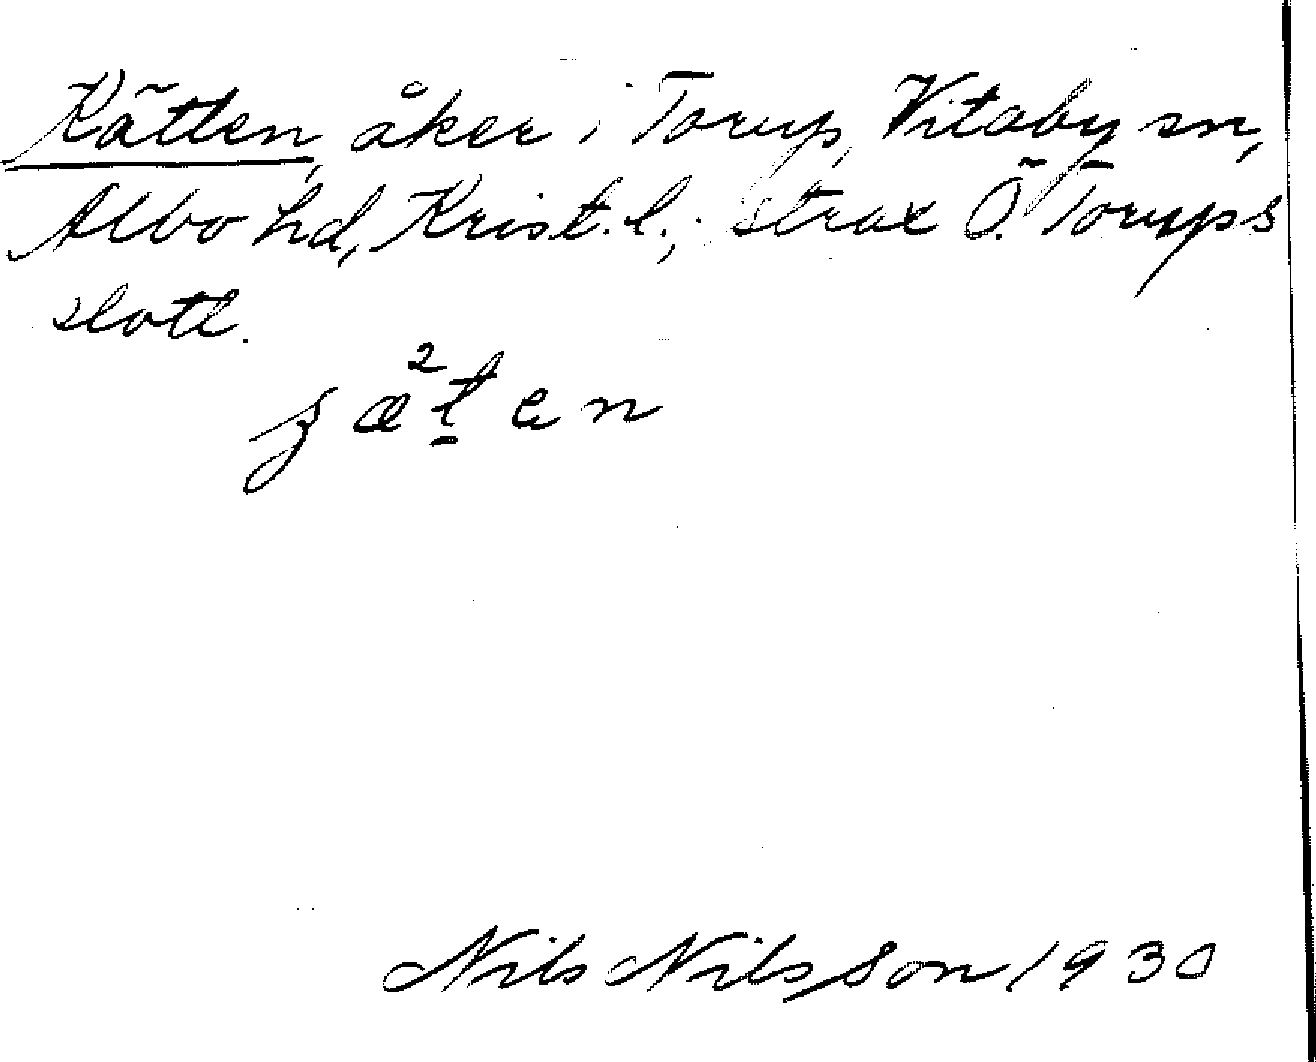 Kätten, åker i Torup, Vitaby sn,
Albo hd, Krist. l.; strax Ö. Torups
slott.
Nils Nilsson 1930